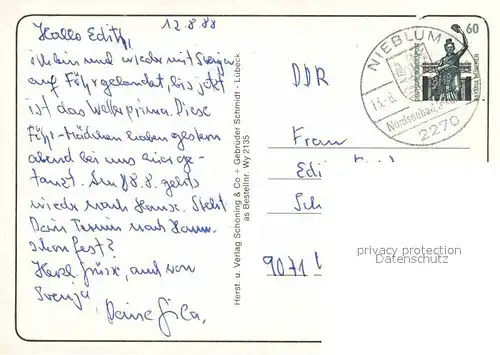 12.8.88
Hallo Edith,
ich bin mal wieder mit Svenja
auf Föhr gelandet, bis jetzt
ist das Wetter prima. Diese
Föhr-Mädchen haben gestern
abend bei uns
tanzt. Am 18.8. gehts
wieder nach Hause. Steht
Dein Termin nach Hann.
schon fest?
Herzl. Grüße, auch von
Svenja,
Deine Gila.
Herst. u. Verlag Schöning & Co + Gebrüder Schmidt - Lübeck
as Bestellnr. Wy 2135
NIEBLUM
13.-8.
Nordseebad
2270
60
DDR
Frau
Edi
Sch
9071
privacy protection
Datenschutz